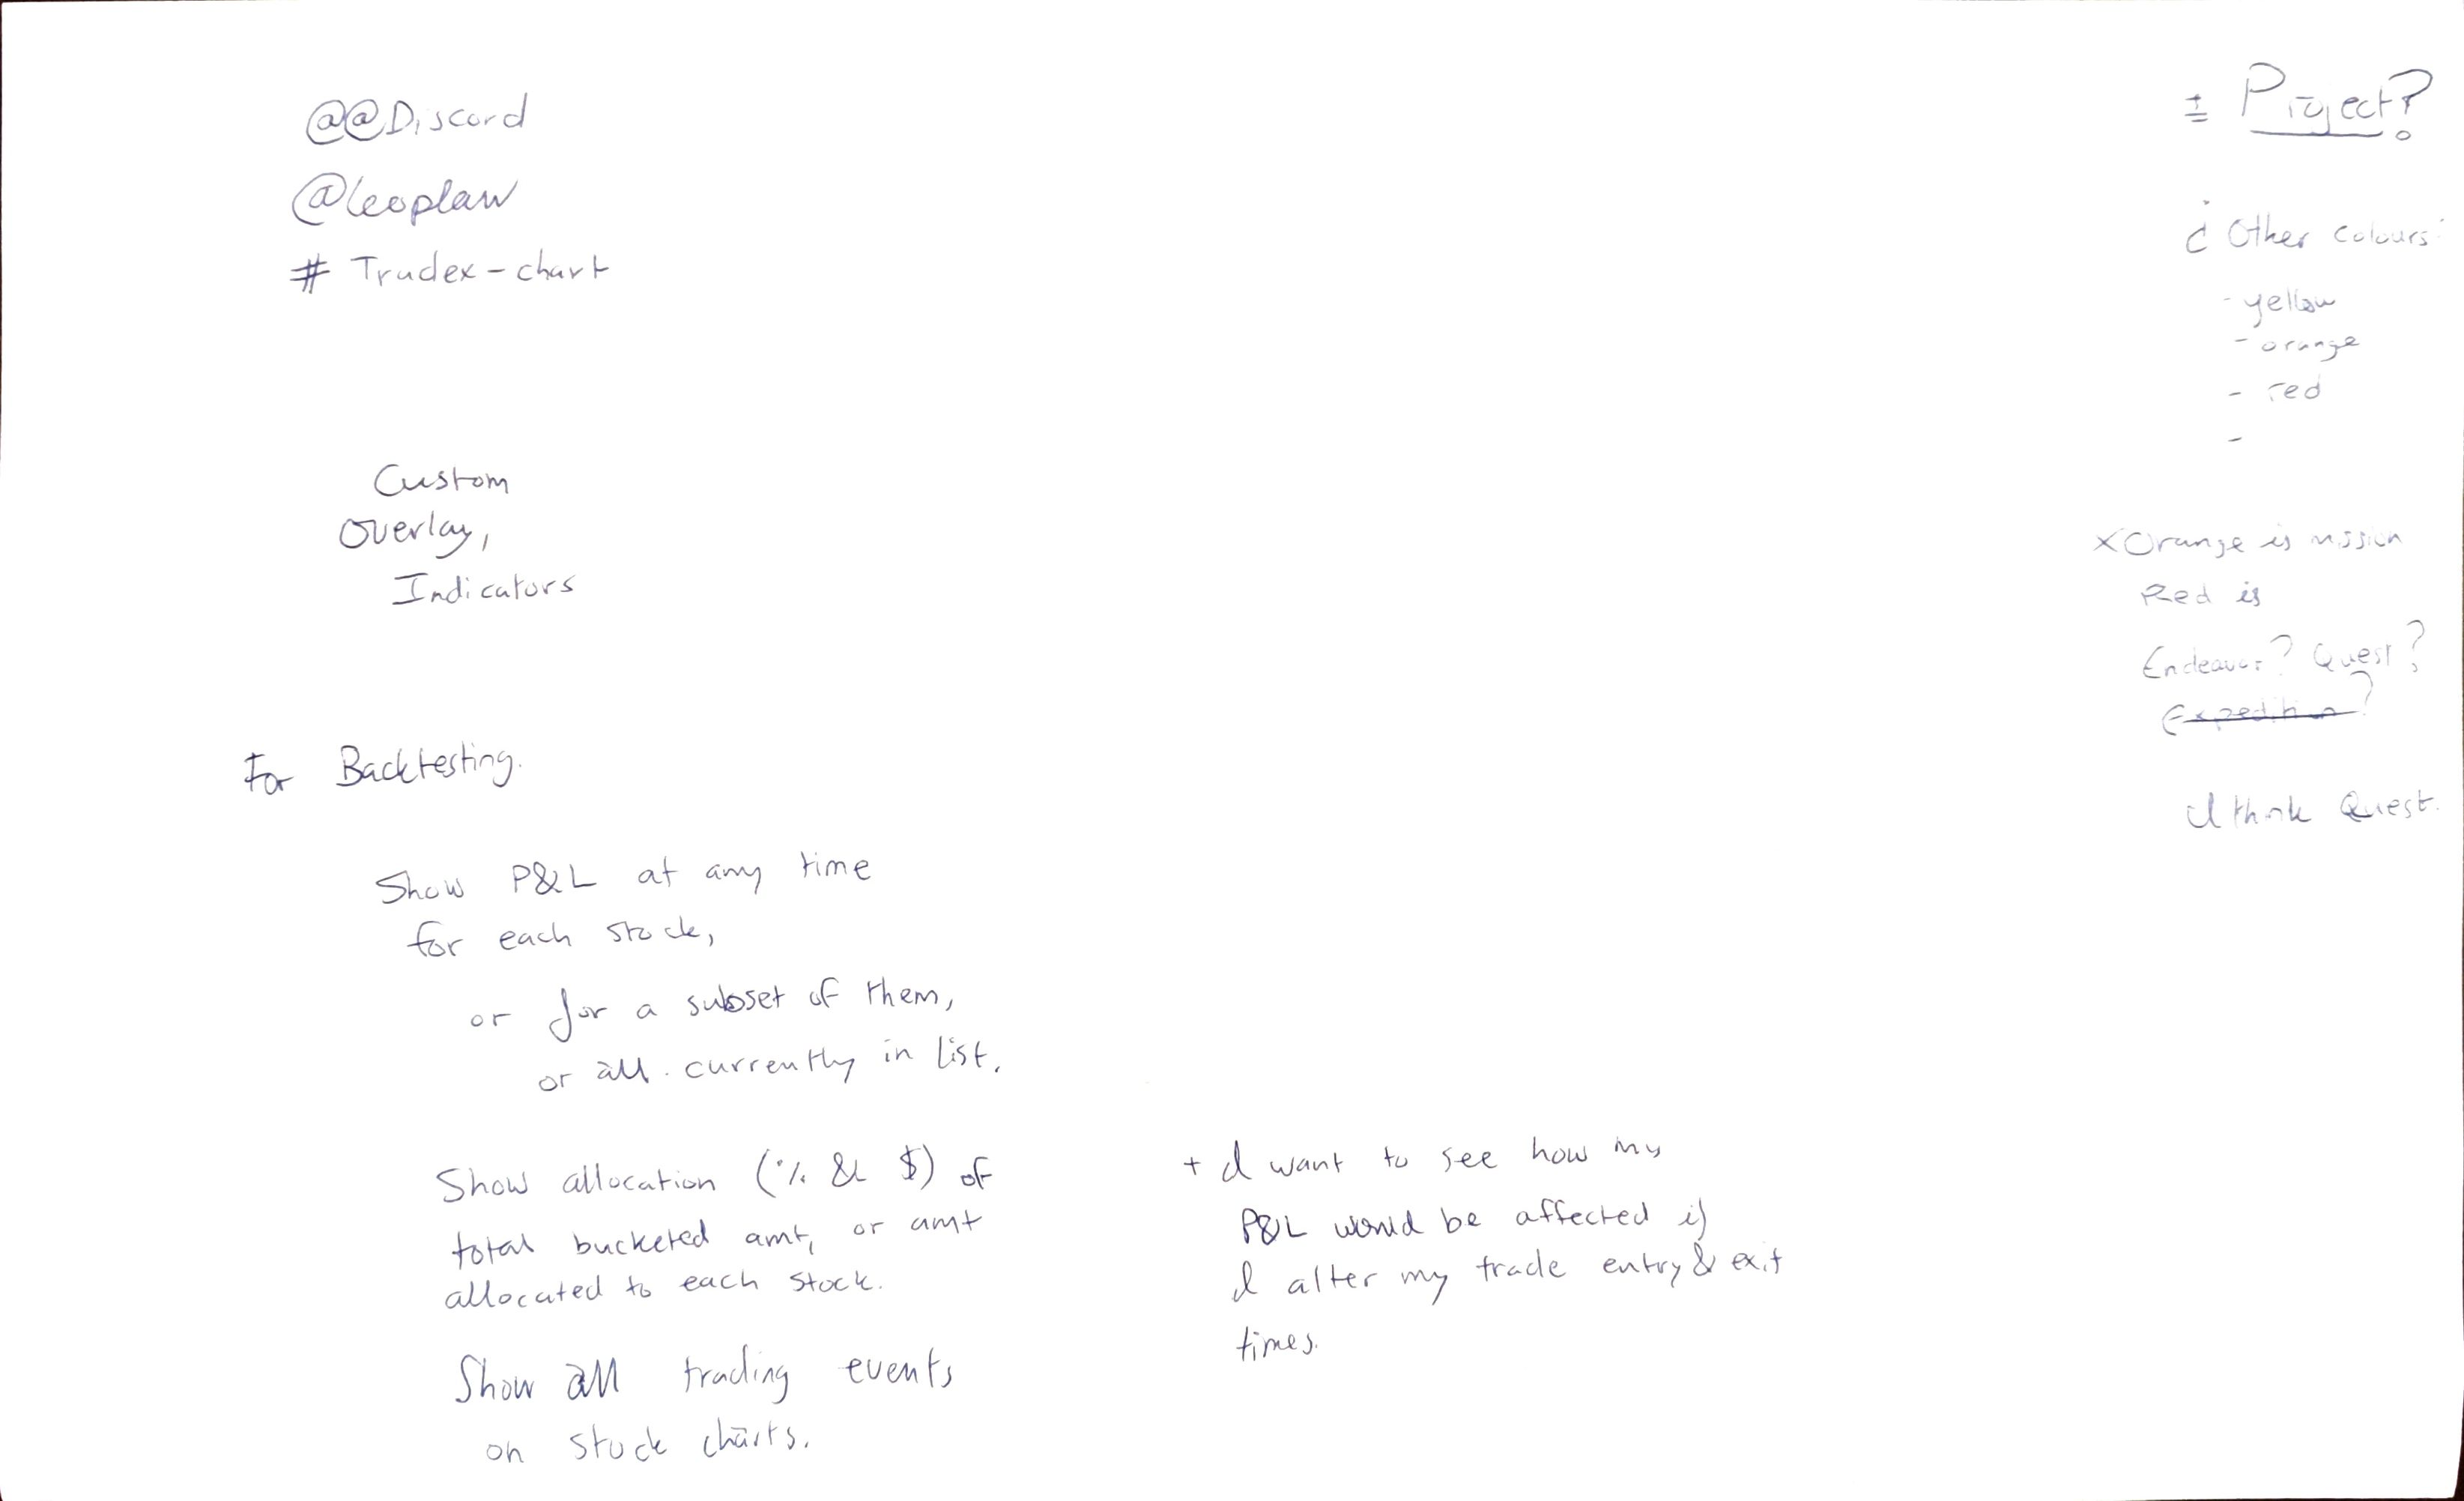 @@Discord
@leoplaw
# Tradex-chart
Custom
Overlay,
Indicators
For Backtesting.
Show P&L at any time
for each stock,
or for a subset of them,
or all currently in list.
Show allocation (% & $) of
total bucketed amt, or amt
allocated to each stock.
Show all trading events
on stock charts.
+ I want to see how my
P&L would be affected if
I alter my trade entry & exit
times.
± Project?
Other colours
- yellow
- orange
- red
-
x Orange is mission
Red is
Endeavor? Quest?
Expedition?
I think Quest.